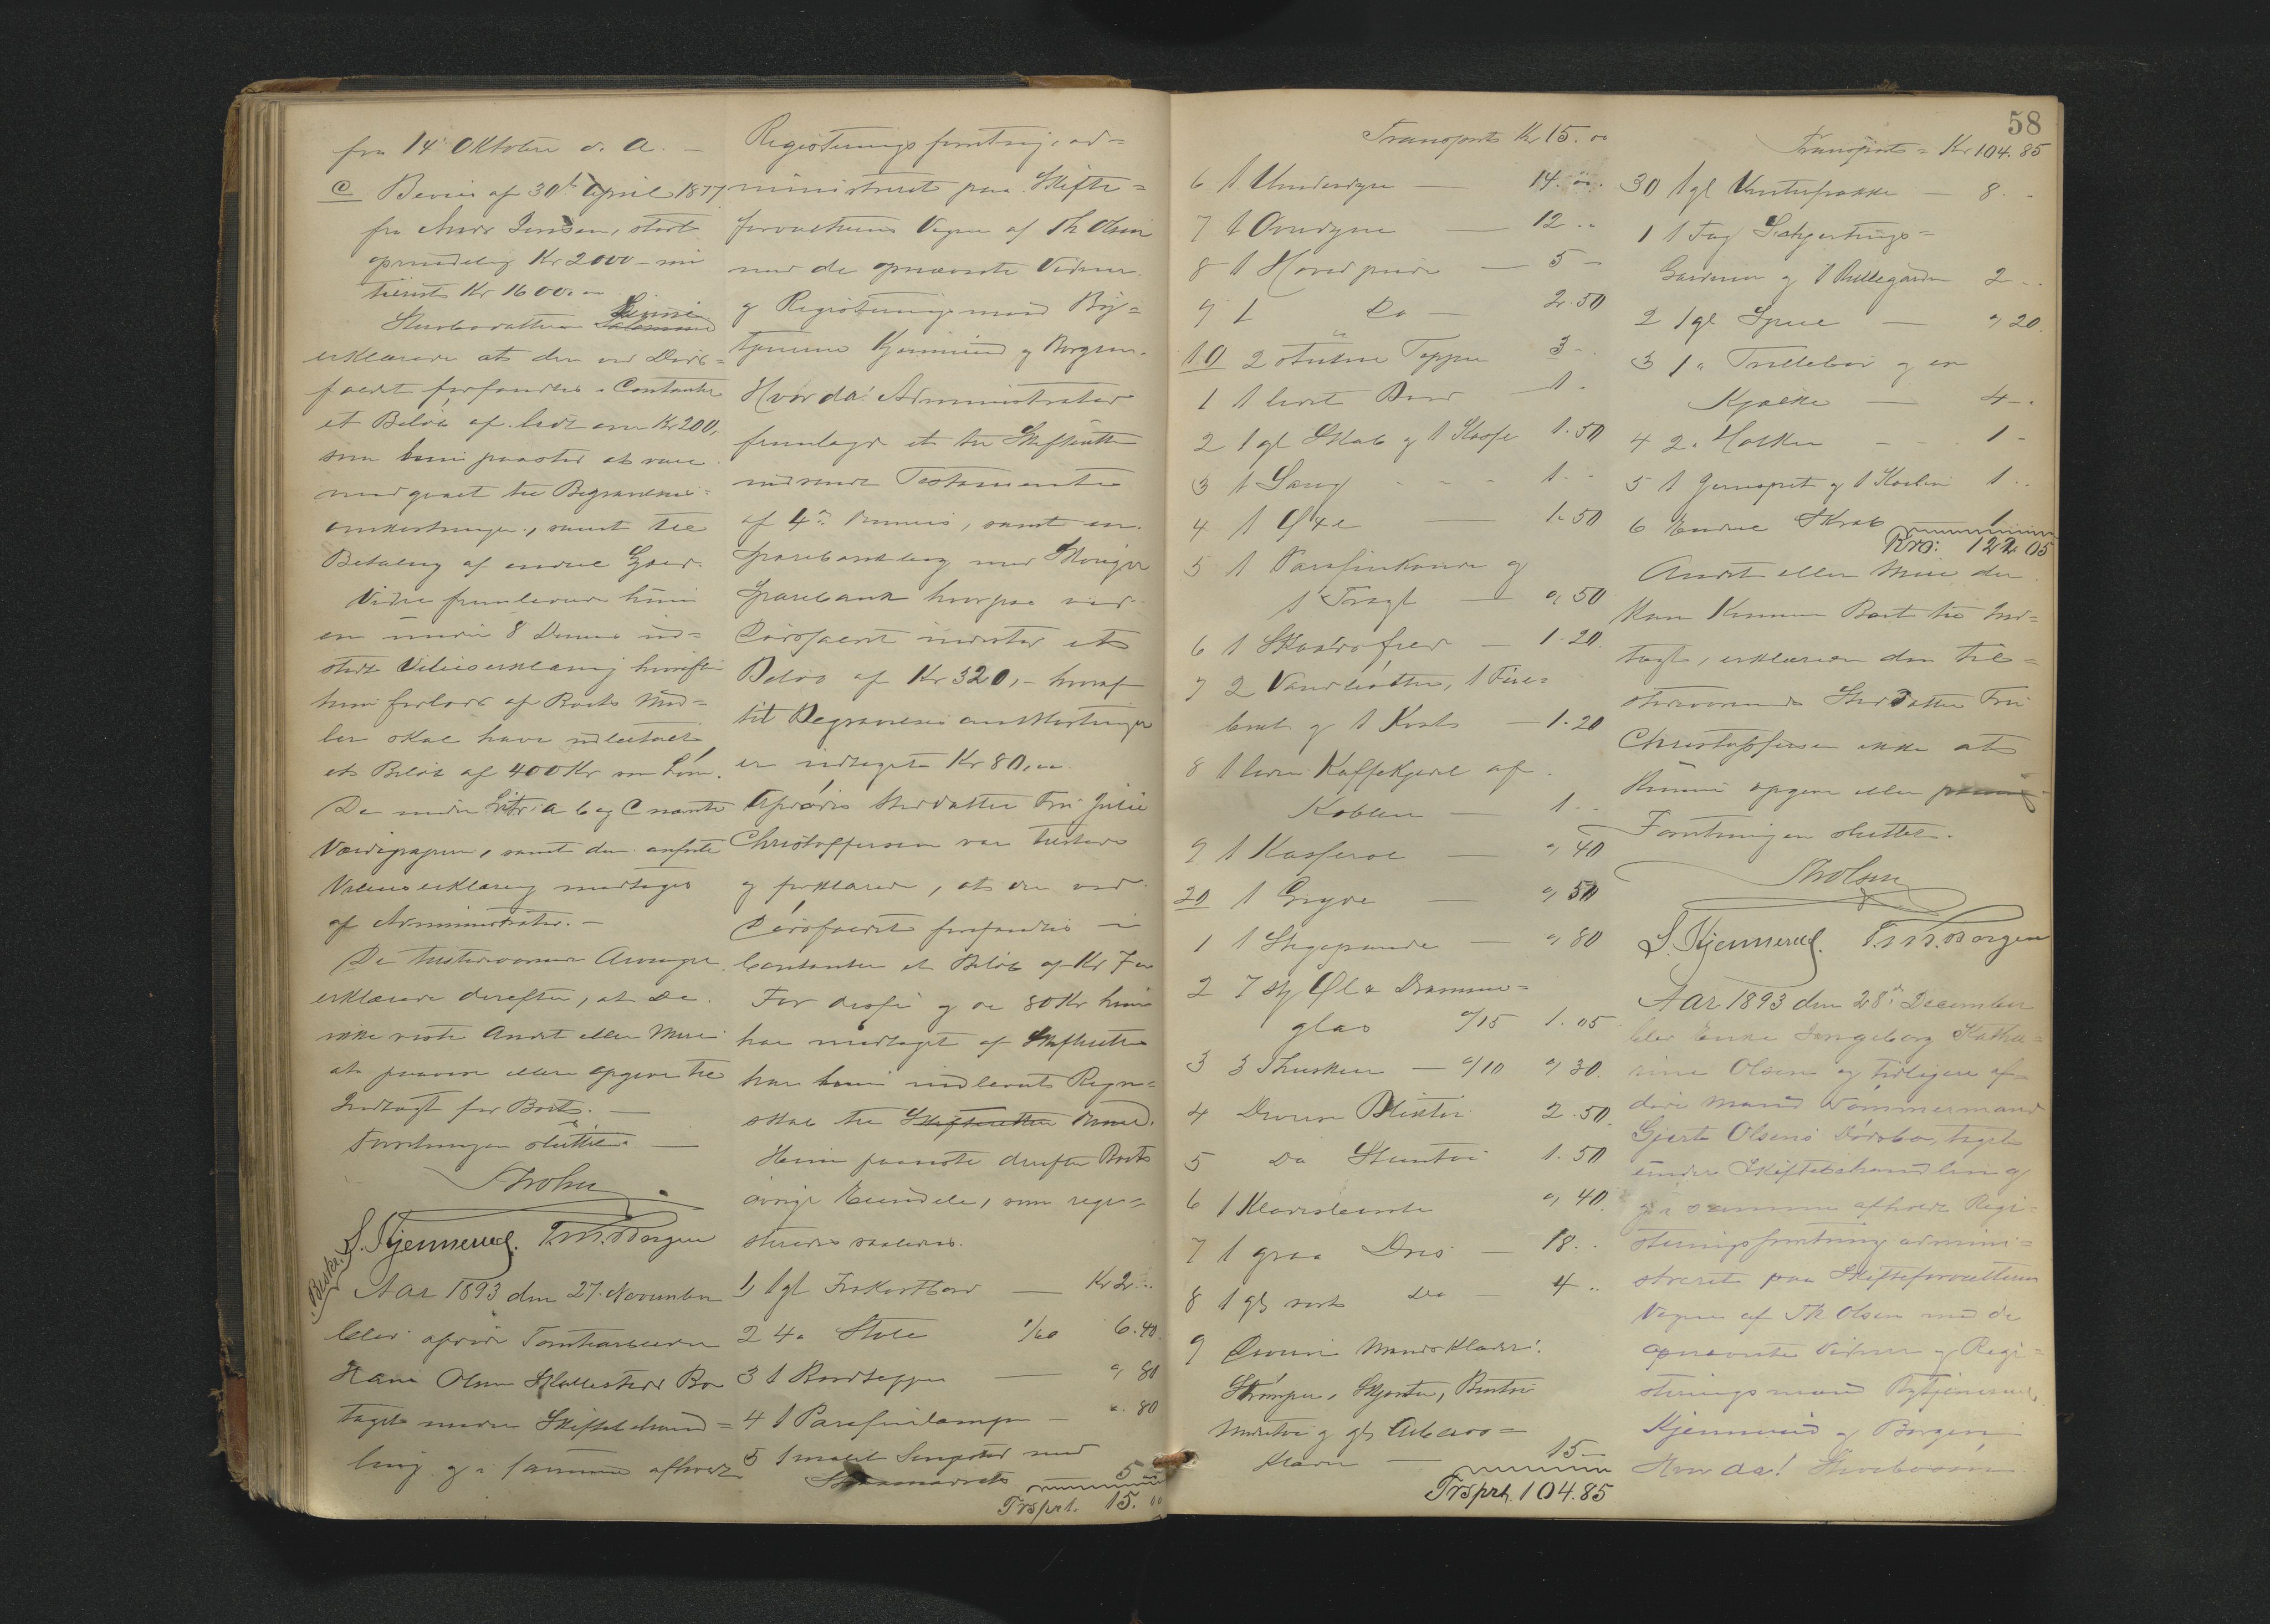 fra 14 Oktober d. A. –
c Bevis af 30te April 1877
fra Anders Jensen, stort
oprindelig Kr 2000 – nu
tilrest Kr 1600.00
Stervbodatteren
erklærede at der ved Døds=
faldet forfandtes i Contanter
et Beløb af lidt over Kr 200,
som hun paastod at være
medgaaet til Begravelses=
omkostninger, samt til
Betaling af endeel Gjæld.
Videre fremleverede hun
en under 8 Dennes ud=
stedt Villieserklæring hvorefter
hun forlods af Boets Mid=
ler skal have udbetalt
et Beløb af 400 Kr som Løn.
De under Litr: a b og c nævnte
Værdipapirer, samt den anførte
Villieserklæring modtoges
af Administrator. –
De tilstedeværende Arvinger
erklærede derefter, at de
ikke viste Andet eller Mere
at paavise eller opgive til
Indtægt for Boet. –
Forretningen sluttet. –
Th Olsen
S. Kjennerud. T. M. Borgen
Beskr.
Aar 1893 den 27. November
blev afdøde Tomtearbeider
Hans Olsen Hallestedt Bo
taget under Skiftebehand=
ling og i samme afholdt
Registreringsforretning, ad=
ministreret paa Skifte=
forvalterens Vegne af Th Olsen
med de opnævnte Vidner
og Registreringsmænd By=
tjenerne Kjennerud og Borgen.
Hvor da! Administrator
fremlagde et til Skifteretten
indsendt Testamente
af 4de Dennes, samt en
Sparebankbog med Modum
Sparebank hvorpaa ved
Dødsfaldet indestod et
Beløb af Kr 320,– hvoraf
til Begravelsesomkostninger
er udtaget Kr 80,00.
Afdødes Steddatter Fru Julie
Christoffersen var tilstede
og forklarede, at der ved
Dødsfaldet forfandtes i
Contanter et Beløb af Kr 7.00
For disse og de 80 Kr hun
har modtaget af Skifteretten
har hun indleveret Regn=
skab til Skifteretten
Hun paaviste derefter Boets
øvrige Eiendele, som regi=
streredes saaledes.
1, 1 gl Irskortbord — Kr 2 ..
2 4 „ Stole 1/60 6.40
3 1 Bordteppe — „ 80
4 1 Parafinlampe — „ 80
5 1 malet Sengsted med
Straamadrats 5 –
Trsprt. 15.00
58
Transport Kr 15.00
6 1 Underdyne — 14. 00.
7 1 Overdyne — 12 ..
8 1 Hovedpude — 5 –
9 1 Do — 2.50
10 2 Tepper 3 –
1 1 lidet Bord 1 –
2 1 gl Skab og 1 Kasse 1.50
3 1 Saug - - - 1. -
4 1 Øxe — 1.50
5 1 Parafinkande og
1 Tragt — „ 50
6 1 — 1.20
7 2 Vandbøtter, 1 Fire=
bræt og 1 Kost — 1.20
8 1 liden Kaffekjedel af
Kobber — 1 –
9 1 Kasserol — „ 40
20 1 Gryde — „ 50
1 1 Stegepande — „ 80
2 7 stk Øl & Dramme=
glas a/15 1.05
3 3 Thuskeer — a/10 „ 30.
4 Diverse Bliktøi 2.50.
5 Do Stentøi 1.50
6 1 Klædesbørste „ 40
7 1 graa Dres — 18..
8 1 gl sort Do — 4 ..
9 Diverse Mandsklæder:
Strømper, Skjorter, Buxtøi
Undertøi og gl Arbeids=
klæder — 15 –
Trsprt. 104.85
Transport = Kr 104.85
30 1 gl Vinterfrakke — 8. –
1 1 Fag
Gardiner og 1 Rullegardin 2 ..
2 1 gl Speil — „ 20.
3 1 „ Trillebør og en
Kjælke — 4 –.
4 2 „ Hakker - - 1 –
5 1 Jernspet og 1 1 ..
6 Endeel Skrab 1
Kro: 122 05
Andet eller Mere der
kan komme Boet til Ind=
tægt, erklærede den til=
stedeværende Steddatter Fru
Christoffersen ikke at
kunne opgive eller
Forretningen sluttet.
Th Olsen
S. Kjennerud. T. M. Borgen
Aar 1893 den 28de December
blev Enke Ingeborg Katha=
rine Olsen og tidligere af=
døde Mand Tømmermand
Gjert Olsens Dødsbo, taget
under Skiftebehandling
og i samme afholdt Regi=
streringsforretning admini=
streret paa Skifteforvalterens
Vegne af Th Olsen med de
opnævnte Vidner og Regi=
streringsmænd Bytjenerne
Kjennerud og Borgen.
Hvor da!